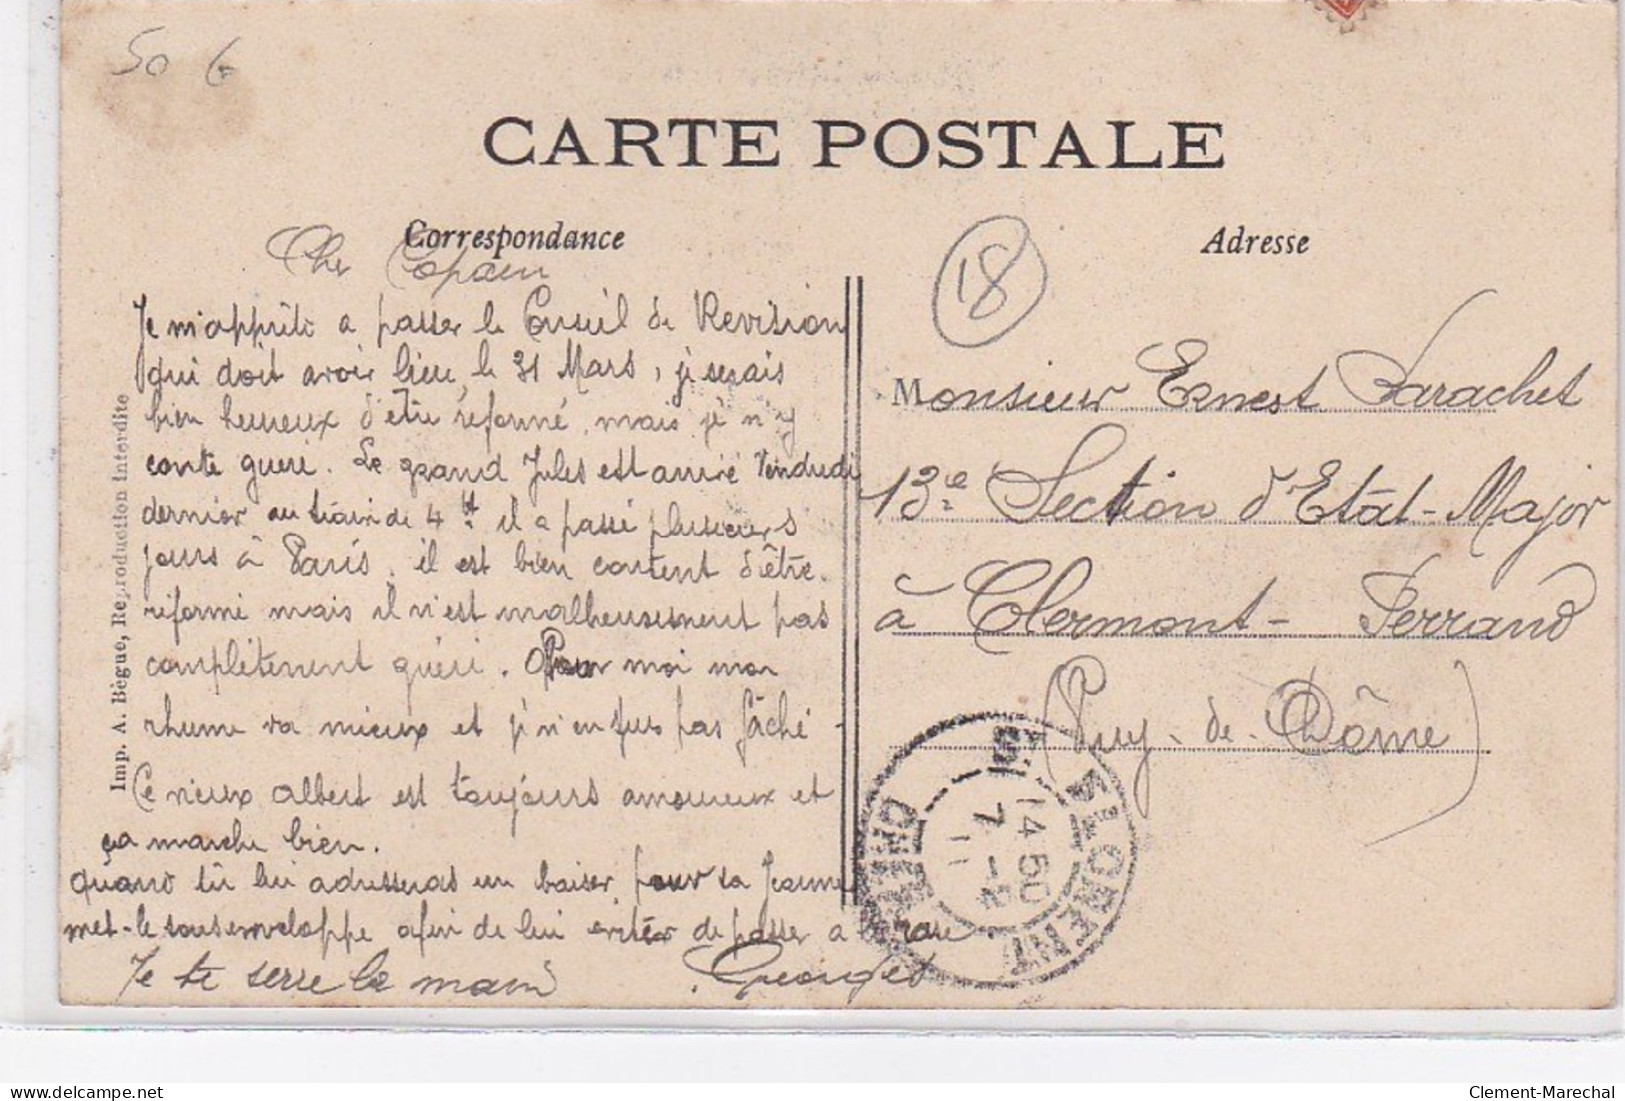 50 €
CARTE POSTALE
Correspondance
Adresse
18
Cher Copain
Je m'apprête a passer le Conseil de Revision
qui doit avoir lieu le 31 Mars, je serais
bien heureux d'être réformé, mais je n'y
conte guère. Le grand Jules est arrivé Vendredi
dernier au train de 4 ht il a passé plusieurs
jours à Paris. il est bien content d'être
réformé mais il n'est malheureusement pas
complètement guéri. Pour moi mon
rhume va mieux et j'n'en suis pas fâché -
Ce vieux Albert est toujours amoureux et
ça marche bien.
quand tu lui adresseras un baiser pour sa Jeanne
met-le sous enveloppe afin de lui éviter de passer a
Je te serre la main
Georget
Monsieur Ernest Larachet
13e Section d'Etat-Major
à Clermont-Ferrand
(Puy-de-Dôme)
Imp. A. Bègue, Reproduction interdite
FLORENT
CHER
14 50
7 - 3
11
delcampe.net
Clement-Marechal